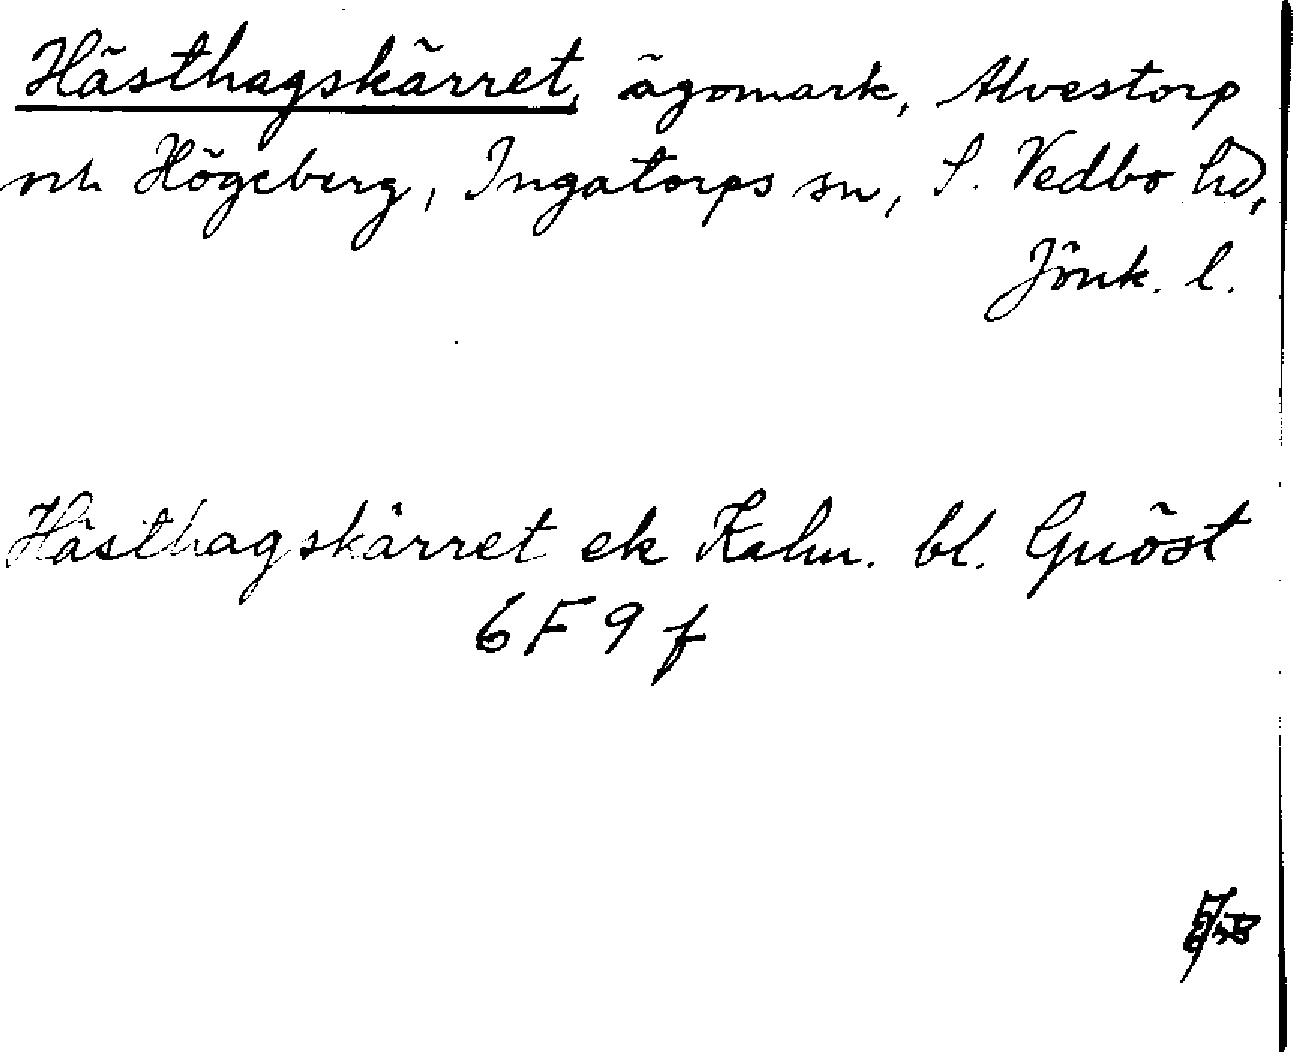 Hästhagskärret, ägomark, Alvestorp
och Högeberg, Ingatorps sn, S. Vedbo hd,
Jönk. l.
Hästhagskärret ek Kalm. bl. Gnöst
6 F 9 f